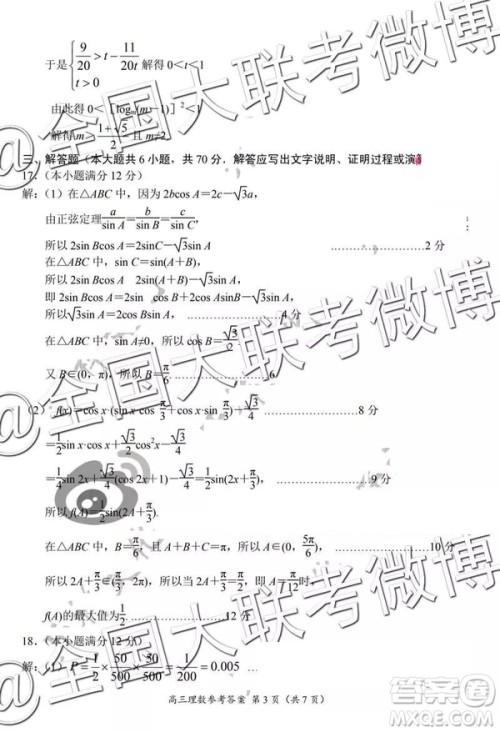 于是{9/20>t-11/20t 解得 0<t<1
t>0
由此得 0< (m-1)]²<1
解得 m>(1+√5)/2 且 m≠2.
三、解答题(本大题共 6 小题，共 70 分．解答应写出文字说明、证明过程或演
17.(本小题满分 12 分)
解：(1)在△ABC 中，因为 2bcos A=2c-√3a,
由正弦定理 a/sin A=b/sin B=c/sin C,
所以 2sin Bcos A=2sin C-√3sin A ……2 分
在△ABC 中，sin C=sin(A+B),
所以 2sin Bcos A 2sin(A+B)-√3sin A,
即 2sin Bcos A=2sin cos B+2cos sin B-√3sin A,
所以√3sin A=2cos Bsin A, ……4 分
在△ABC 中，sin A≠0，所以 cos B=√3/2
又 B∈(0，π)，所以 B=π/6 ……6
(2) f(x)=cos x·(sin x·cos π/3+cos x·sin π/3)-√3/4 ……8 分
=1/2sin x·cos x+√3/2cos²x-√3/4
=1/4sin 2x+√3/4 =1/2sin(2x+π/3),
所以 f(A)=1/2sin(2A+π/3).
在△ABC 中，B=π/6，且 A+B+C=π，所以 A∈(0，5π/6) ……10 分
所以 2A+π/3∈(π/3，2π)，所以当 2A+π/3=π/2，即 A=π/12时，
f(A)的最大值为1/2 ……12 分
18.(本小题满分 12 分)
解：(1) P=1/2×50/500×50/500=0.005 …
高三理数参考答案 第 3 页（共 7 页）
@全国大联考微博
@全国大联考微博